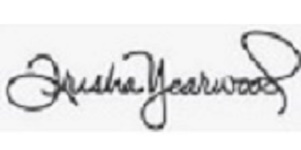 Trisha Yearwood